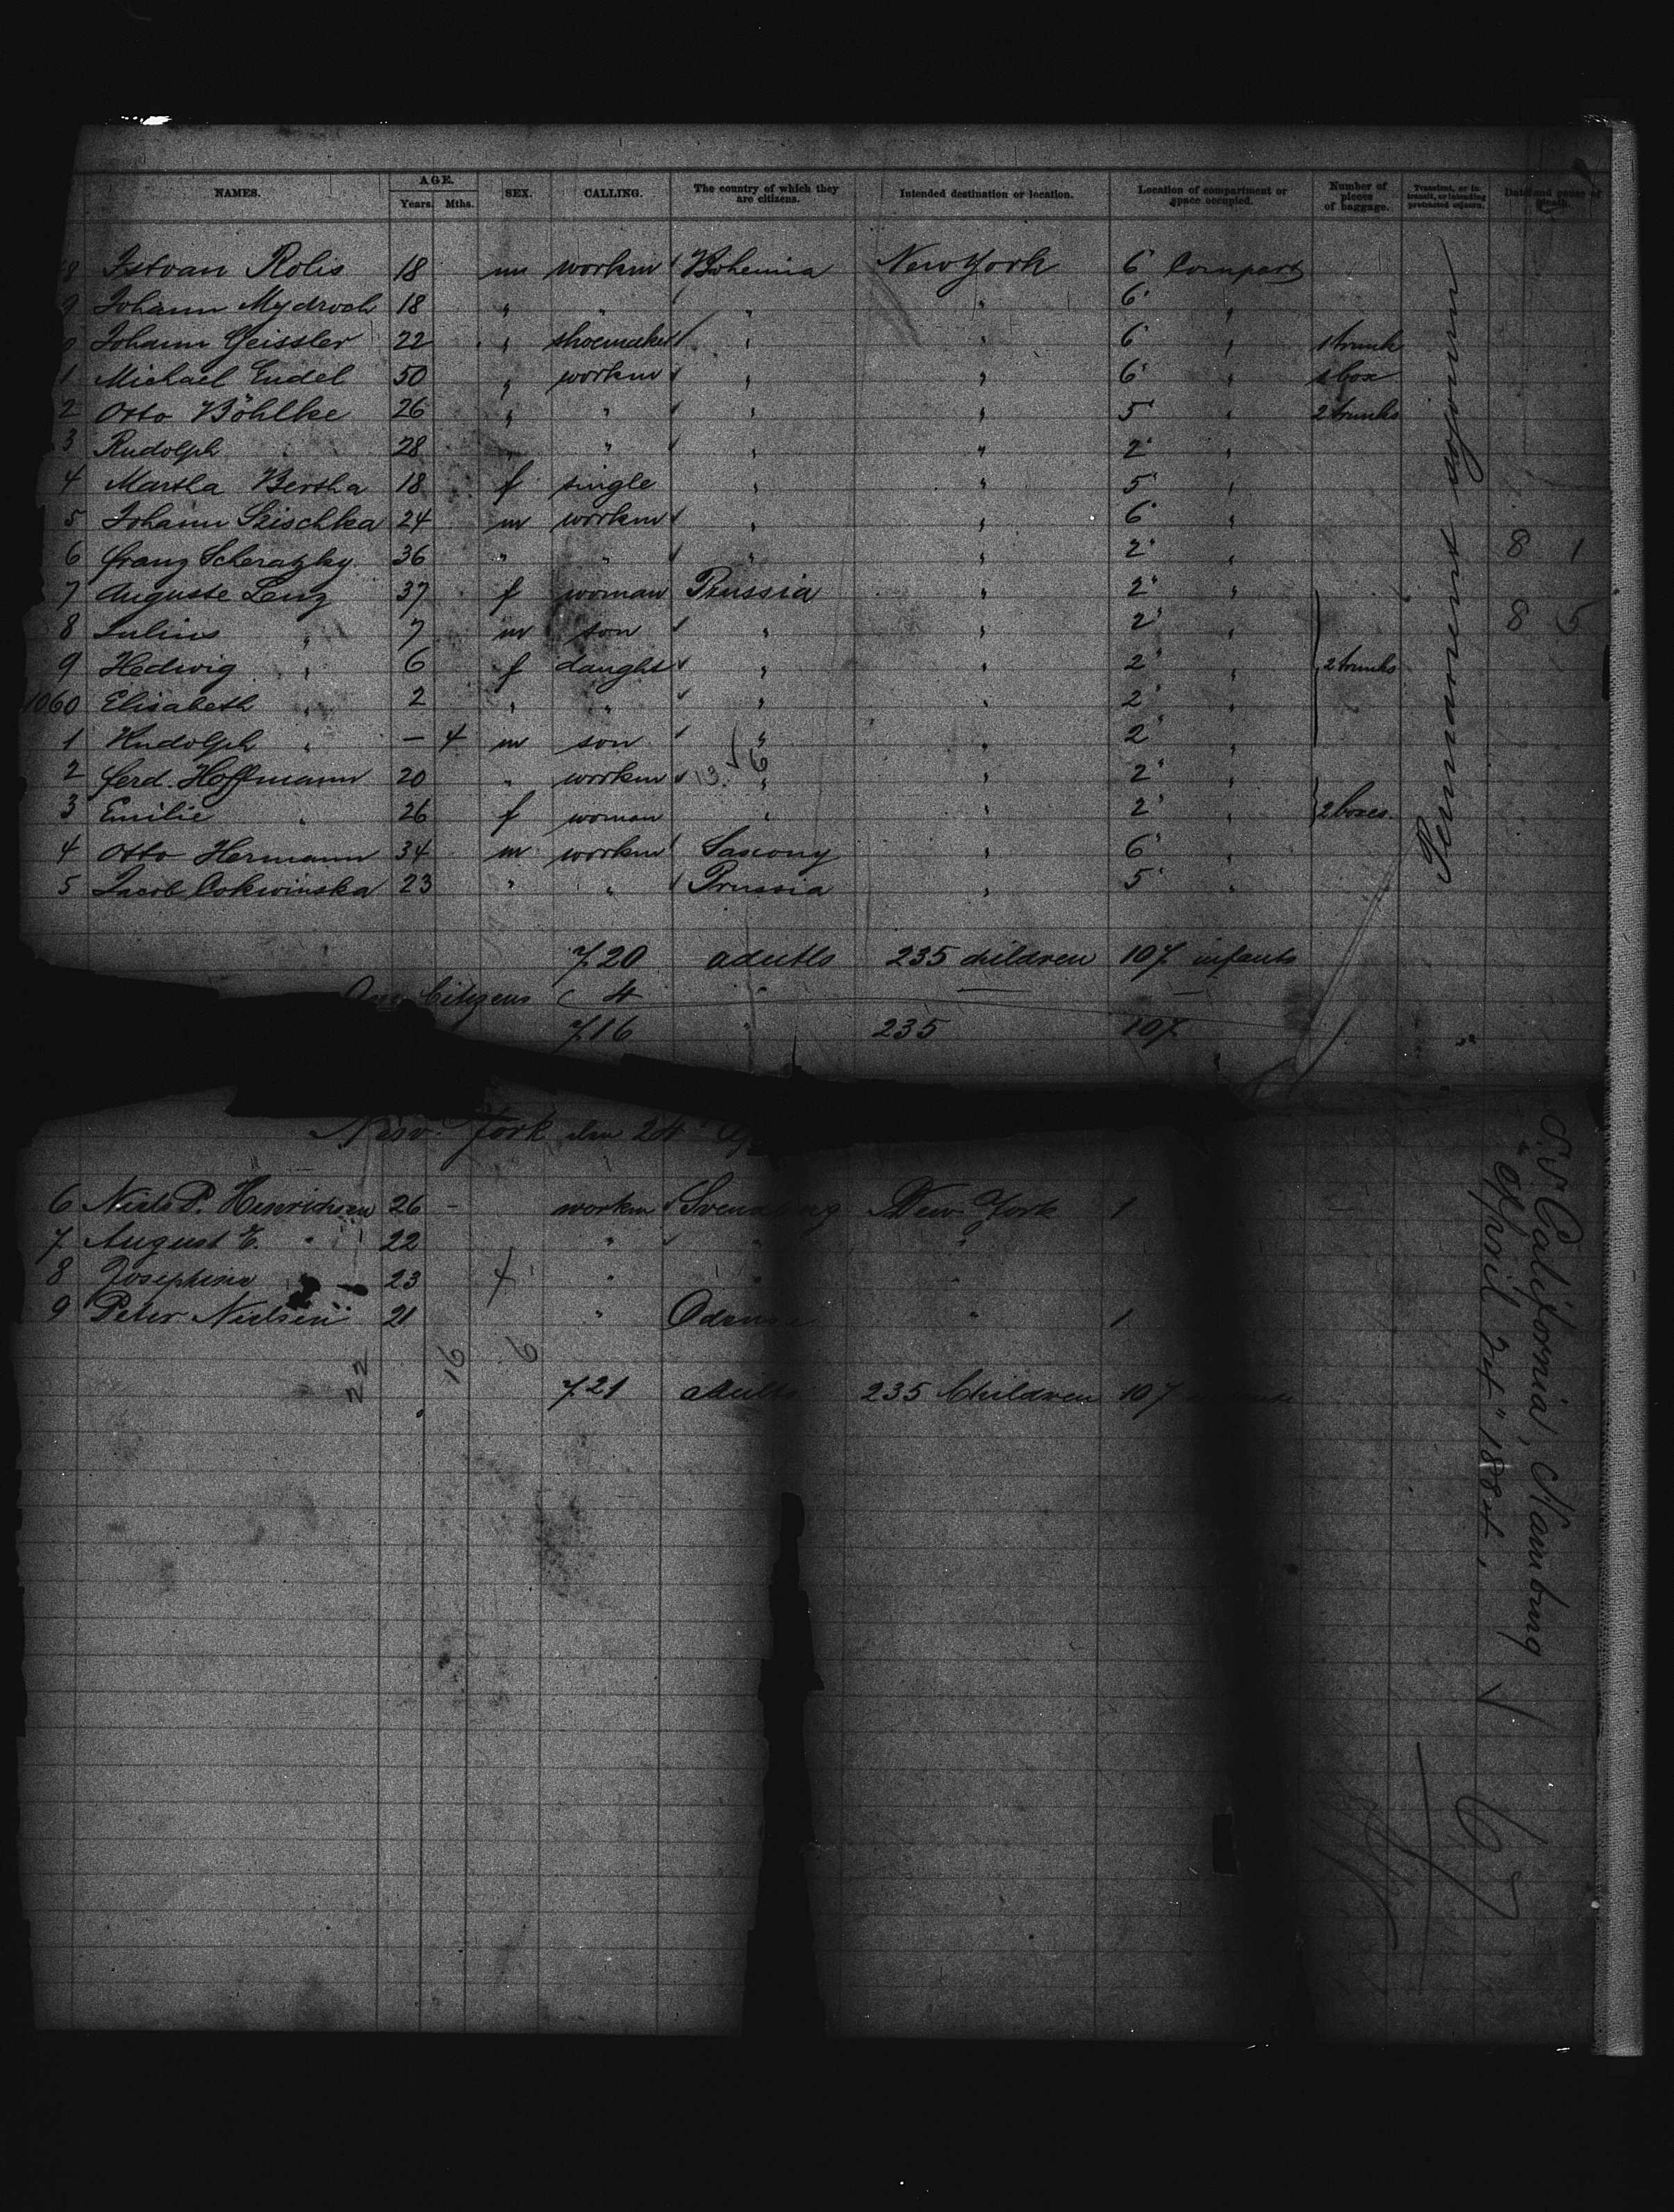 NAMES. AGE. Years. Mths. SEX. CALLING. The country of which they are citizens. Intended destination or location. Location of compartment or space occupied. Number of pieces of baggage. Transient, or in transit, or intending protracted sojourn. Date and cause of death.
8 Istvan Rolis 18 m workm Bohemia New York 6' Compart
9 Johann Mydroch 18 " " " " 6' "
0 Johann Geissler 22 " shoemaker " " 6' " 1 trunk
1 Michael Endel 50 " workm " " 6' " 1 box
2 Otto Böhlke 26 " " " " 5' " 2 trunks
3 Rudolph " 28 " " " " 2' "
4 Martha Bertha 18 f single " " 5' "
5 Johann Szischka 24 m workm " " 6' "
6 Franz Scheratzky 36 " " " " 2' " 8 1
7 Auguste Lenz 37 f woman Prussia " 2' "
8 Julius " 7 m son " " 2' " 8 5
9 Hedwig " 6 f daught " " 2' " 2 trunks
1060 Elisabeth " 2 " " " " 2' "
1 Rudolph " – 4 m son " " 2' "
2 Ferd. Hoffmann 20 " workm 13. 6 " " 2' "
3 Emilie " 26 f woman " " 2' " 2 boxes
4 Otto Hermann 34 m workm Saxony " 6' "
5 Jacob Cokwinska 23 " " Prussia " 5' "
Permanent sojourn
720 adults 235 children 107 infants
Citizens 4 " — —
716 " 235 107
New York den 24
6 Niels P. Hinrichsen 26 - workm Svend New York 1
7 August E. " 22 " " "
8 Josephine " 23 f " " "
9 Peter Nielsen 21 " Odense " 1
22 16 6
721 adults 235 Children 107
S.S. California, Hamburg
April 24" 1884,
67